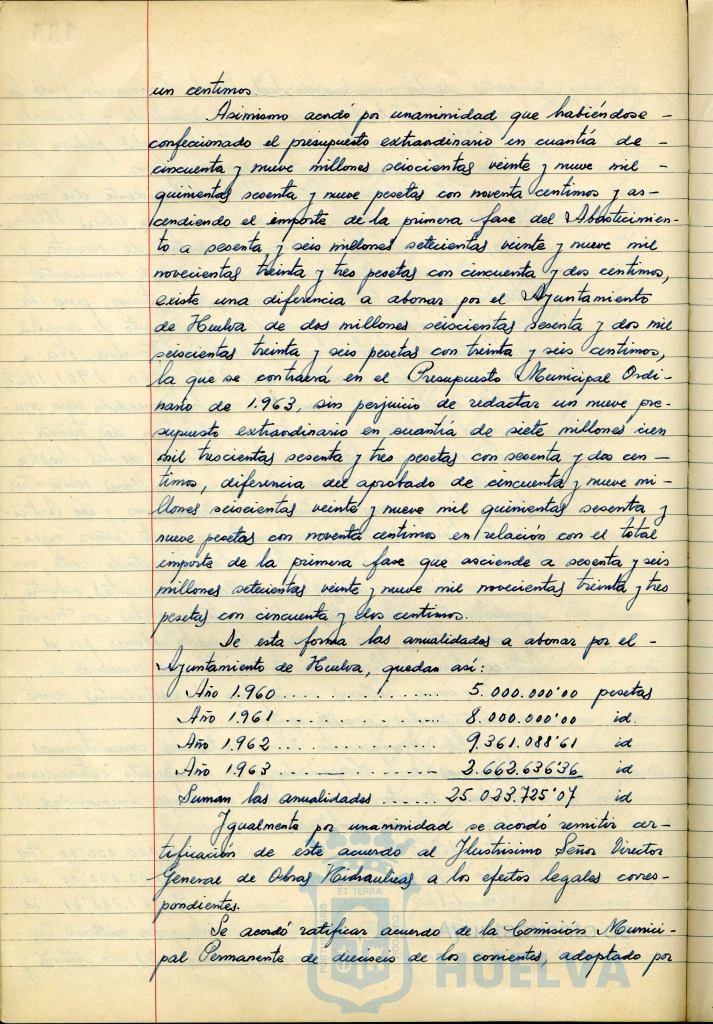 un centimos.
Asimismo acordó por unanimidad que habiéndose -
confeccionado el presupuesto extraordinario en cuantía de -
cincuenta y nueve millones seiscientas veinte y nueve mil -
quinientas sesenta y nueve pesetas con noventa centimos y as-
cendiendo el importe de la primera fase del Abastecimien-
to a sesenta y seis millones setecientas veinte y nueve mil
novecientas treinta y tres pesetas con cincuenta y dos centimos,
existe una diferencia a abonar por el Ayuntamiento
de Huelva de dos millones seiscientas sesenta y dos mil
seiscientas treinta y seis pesetas con treinta y seis centimos,
la que se contraerá en el Presupuesto Municipal Ordi-
nario de 1.963, sin perjuicio de redactar un nuevo pre-
supuesto extraordinario en cuantía de siete millones cien
mil trescientas sesenta y tres pesetas con sesenta y dos cen-
timos, diferencia del aprobado de cincuenta y nueve mi-
llones seiscientas veinte y nueve mil quinientas sesenta y
nueve pesetas con noventa centimos en relación con el total
importe de la primera fase que asciende a sesenta y seis
millones setecientas veinte y nueve mil novecientas treinta y tres
pesetas con cincuenta y dos centimos.
De esta forma las anualidades a abonar por el -
Ayuntamiento de Huelva, quedan así:
Año 1.960 .................. 5.000.000'00 pesetas
Año 1.961 .................. 8.000.000'00 id.
Año 1.962 .................. 9.361.088'61 id
Año 1.963 .................. 2.662.636'36 id
Suman las anualidades ...... 25.023.725'07 id
Igualmente por unanimidad se acordó remitir cer-
tificación de este acuerdo al Ilustrisimo Señor Director
General de Obras Hidraulicas a los efectos legales corres-
pondientes.
Se acordó ratificar acuerdo de la Comisión Munici-
pal Permanente de dieciseis de los corrientes, adoptado por
ET TERRA
HUELVA